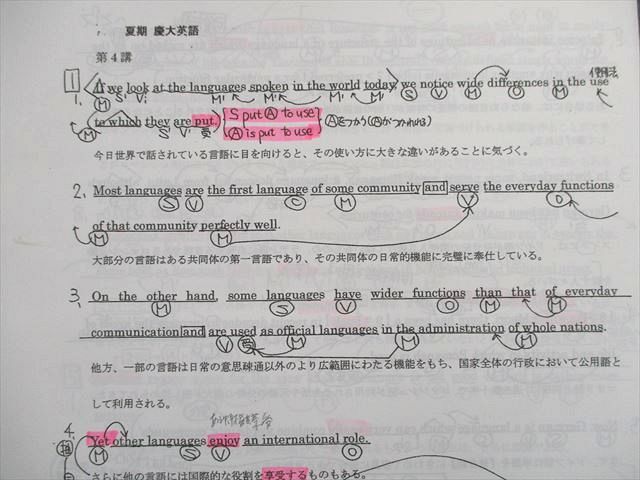 夏期 慶大英語
第4講
1 If we look at the languages spoken in the world today, we notice wide differences in the use
M S' Vi M' M' M' S V M O M
1. to which they are put. S put A to use Aをつかう(Aがつかわれる)
M S' V' 受 A is put to use
今日世界で話されている言語に目を向けると、その使い方に大きな違いがあることに気づく。
2. Most languages are the first language of some community and serve the everyday functions
S V C M V O
of that community perfectly well.
M M
大部分の言語はある共同体の第一言語であり、その共同体の日常的機能に完璧に奉仕している。
3. On the other hand, some languages have wider functions than that of everyday
M S V O M M
communication and are used as official languages in the administration of whole nations.
V 受 M M M
他方、一部の言語は日常の意思疎通以外のより広範囲にわたる機能をもち、国家全体の行政において公用語と
して利用される。
4. Yet other languages enjoy an international role.
M S V O
さらに他の言語には国際的な役割を享受するものもある。